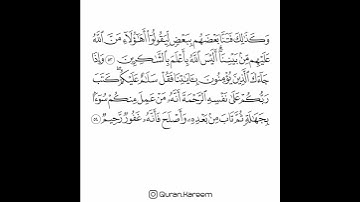 وَكَذَٰلِكَ فَتَنَّا بَعْضَهُم بِبَعْضٍ لِّيَقُولُوٓا۟ أَهَٰٓؤُلَآءِ مَنَّ ٱللَّهُ
عَلَيْهِم مِّنۢ بَيْنِنَآ ۗ أَلَيْسَ ٱللَّهُ بِأَعْلَمَ بِٱلشَّٰكِرِينَ ٥٣ وَإِذَا
جَآءَكَ ٱلَّذِينَ يُؤْمِنُونَ بِـَٔايَٰتِنَا فَقُلْ سَلَٰمٌ عَلَيْكُمْ ۖ كَتَبَ
رَبُّكُمْ عَلَىٰ نَفْسِهِ ٱلرَّحْمَةَ ۖ أَنَّهُۥ مَنْ عَمِلَ مِنكُمْ سُوٓءًۢا
بِجَهَٰلَةٍ ثُمَّ تَابَ مِنۢ بَعْدِهِۦ وَأَصْلَحَ فَأَنَّهُۥ غَفُورٌ رَّحِيمٌ ٥٤
Quran.Kareem